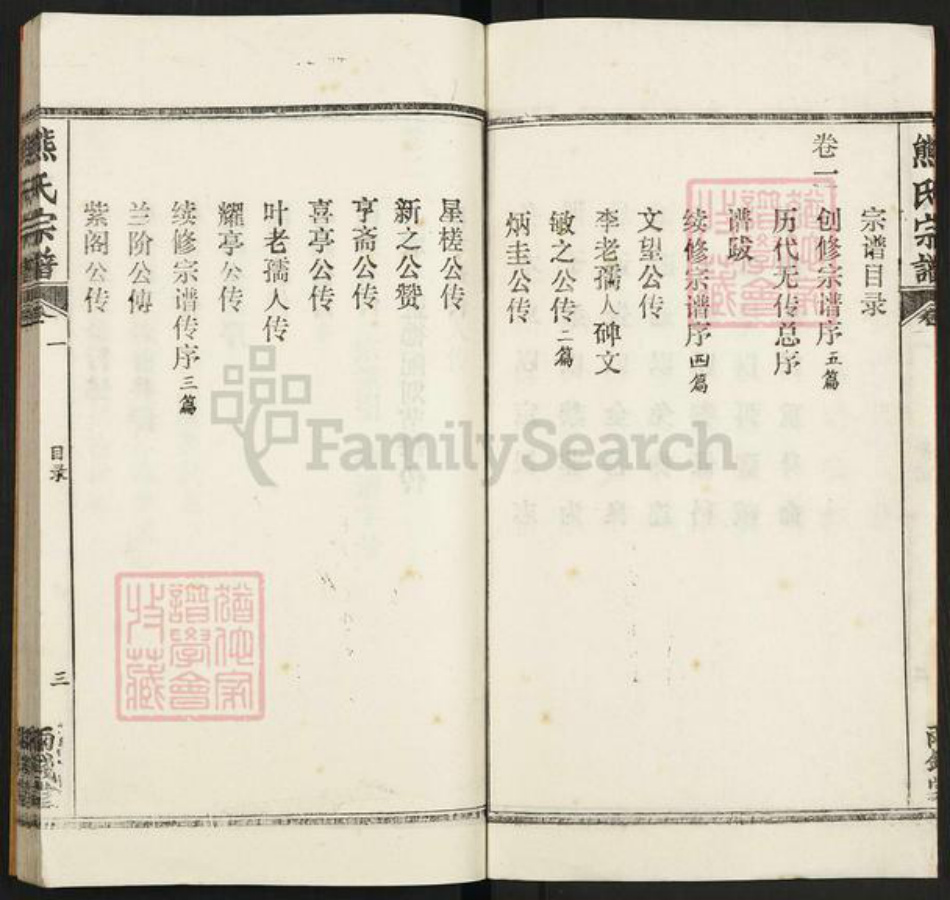 熊氏宗譜
宗谱目录
卷一
创修宗谱序五篇
历代无传总序
谱跋
续修宗谱序四篇
文望公传
李老孺人碑文
敏之公传二篇
炳圭公传
星槎公传
新之公赞
亨斋公传
喜亭公传
叶老孺人传
耀亭公传
续修宗谱传序三篇
兰阶公傳
紫阁公传
熊氏宗譜
一
目录
三
FamilySearch